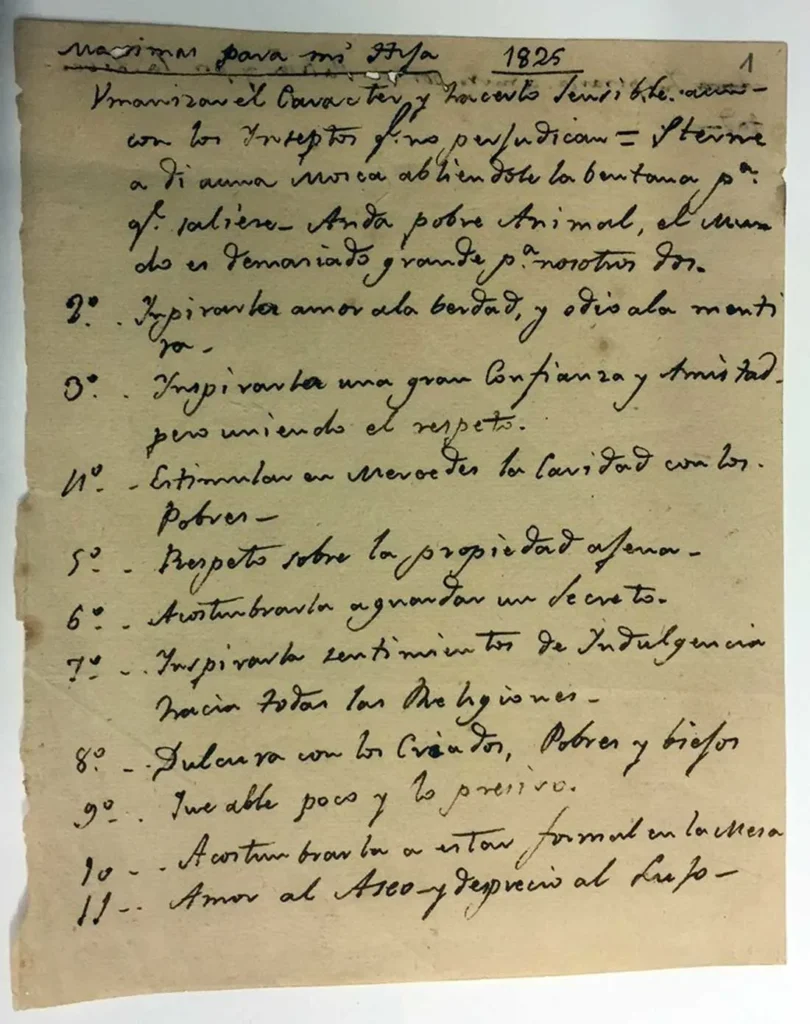 Maximas para mi Hija 1825 1
Vmanizar el Caracter y hacerlo Sensible aun
con los Inseptos q.e no perjudican = Sterne
a di auna Mosca abliendole la bentana p.a
q.e saliese - Anda pobre Animal, el Mun-
do es demaciado grande p.a nosotros dos.
2º. Inpirarla amor ala berdad, y odio ala menti
ra -
3º. Inspirarla una gran Confianza y Amistad
pero uniendo el respeto.
4º. - Estimular en Mercedes la Caridad con los
Pobres -
5º. - Respeto sobre la propiedad ajena -
6º. - Acostunbrarla a guardar un Secreto.
7º. - Inspirarla sentimientos de Indulgencia
hacia todas las Religiones -
8º. - Dulcura con los Criados, Pobres y biejos
9º. Que able poco y lo presiso.
10 - - Acostunbrarla a estar formal en la Mesa
11 - . Amor al Aseo - y desprecio al Lujo -